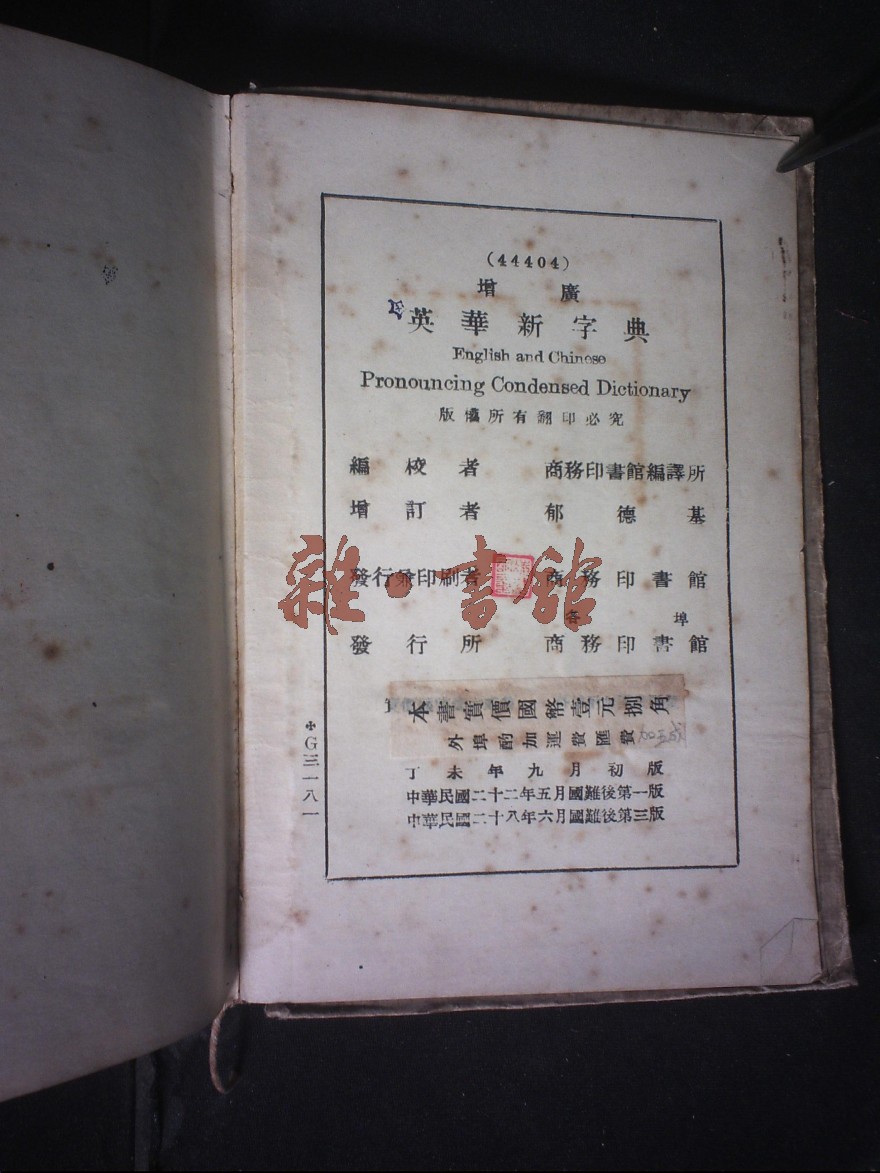 (44404)
增廣
英華新字典
English and Chinese
Pronouncing Condensed Dictionary
版權所有翻印必究
編校者 商務印書館編譯所
增訂者 郁德基
發行兼印刷者 商務印書館
各埠
發行所 商務印書館
本書實價國幣壹元捌角
外埠酌加運費匯費
丁未年九月初版
中華民國二十二年五月國難後第一版
中華民國二十八年六月國難後第三版
G三一八一
雜·書館